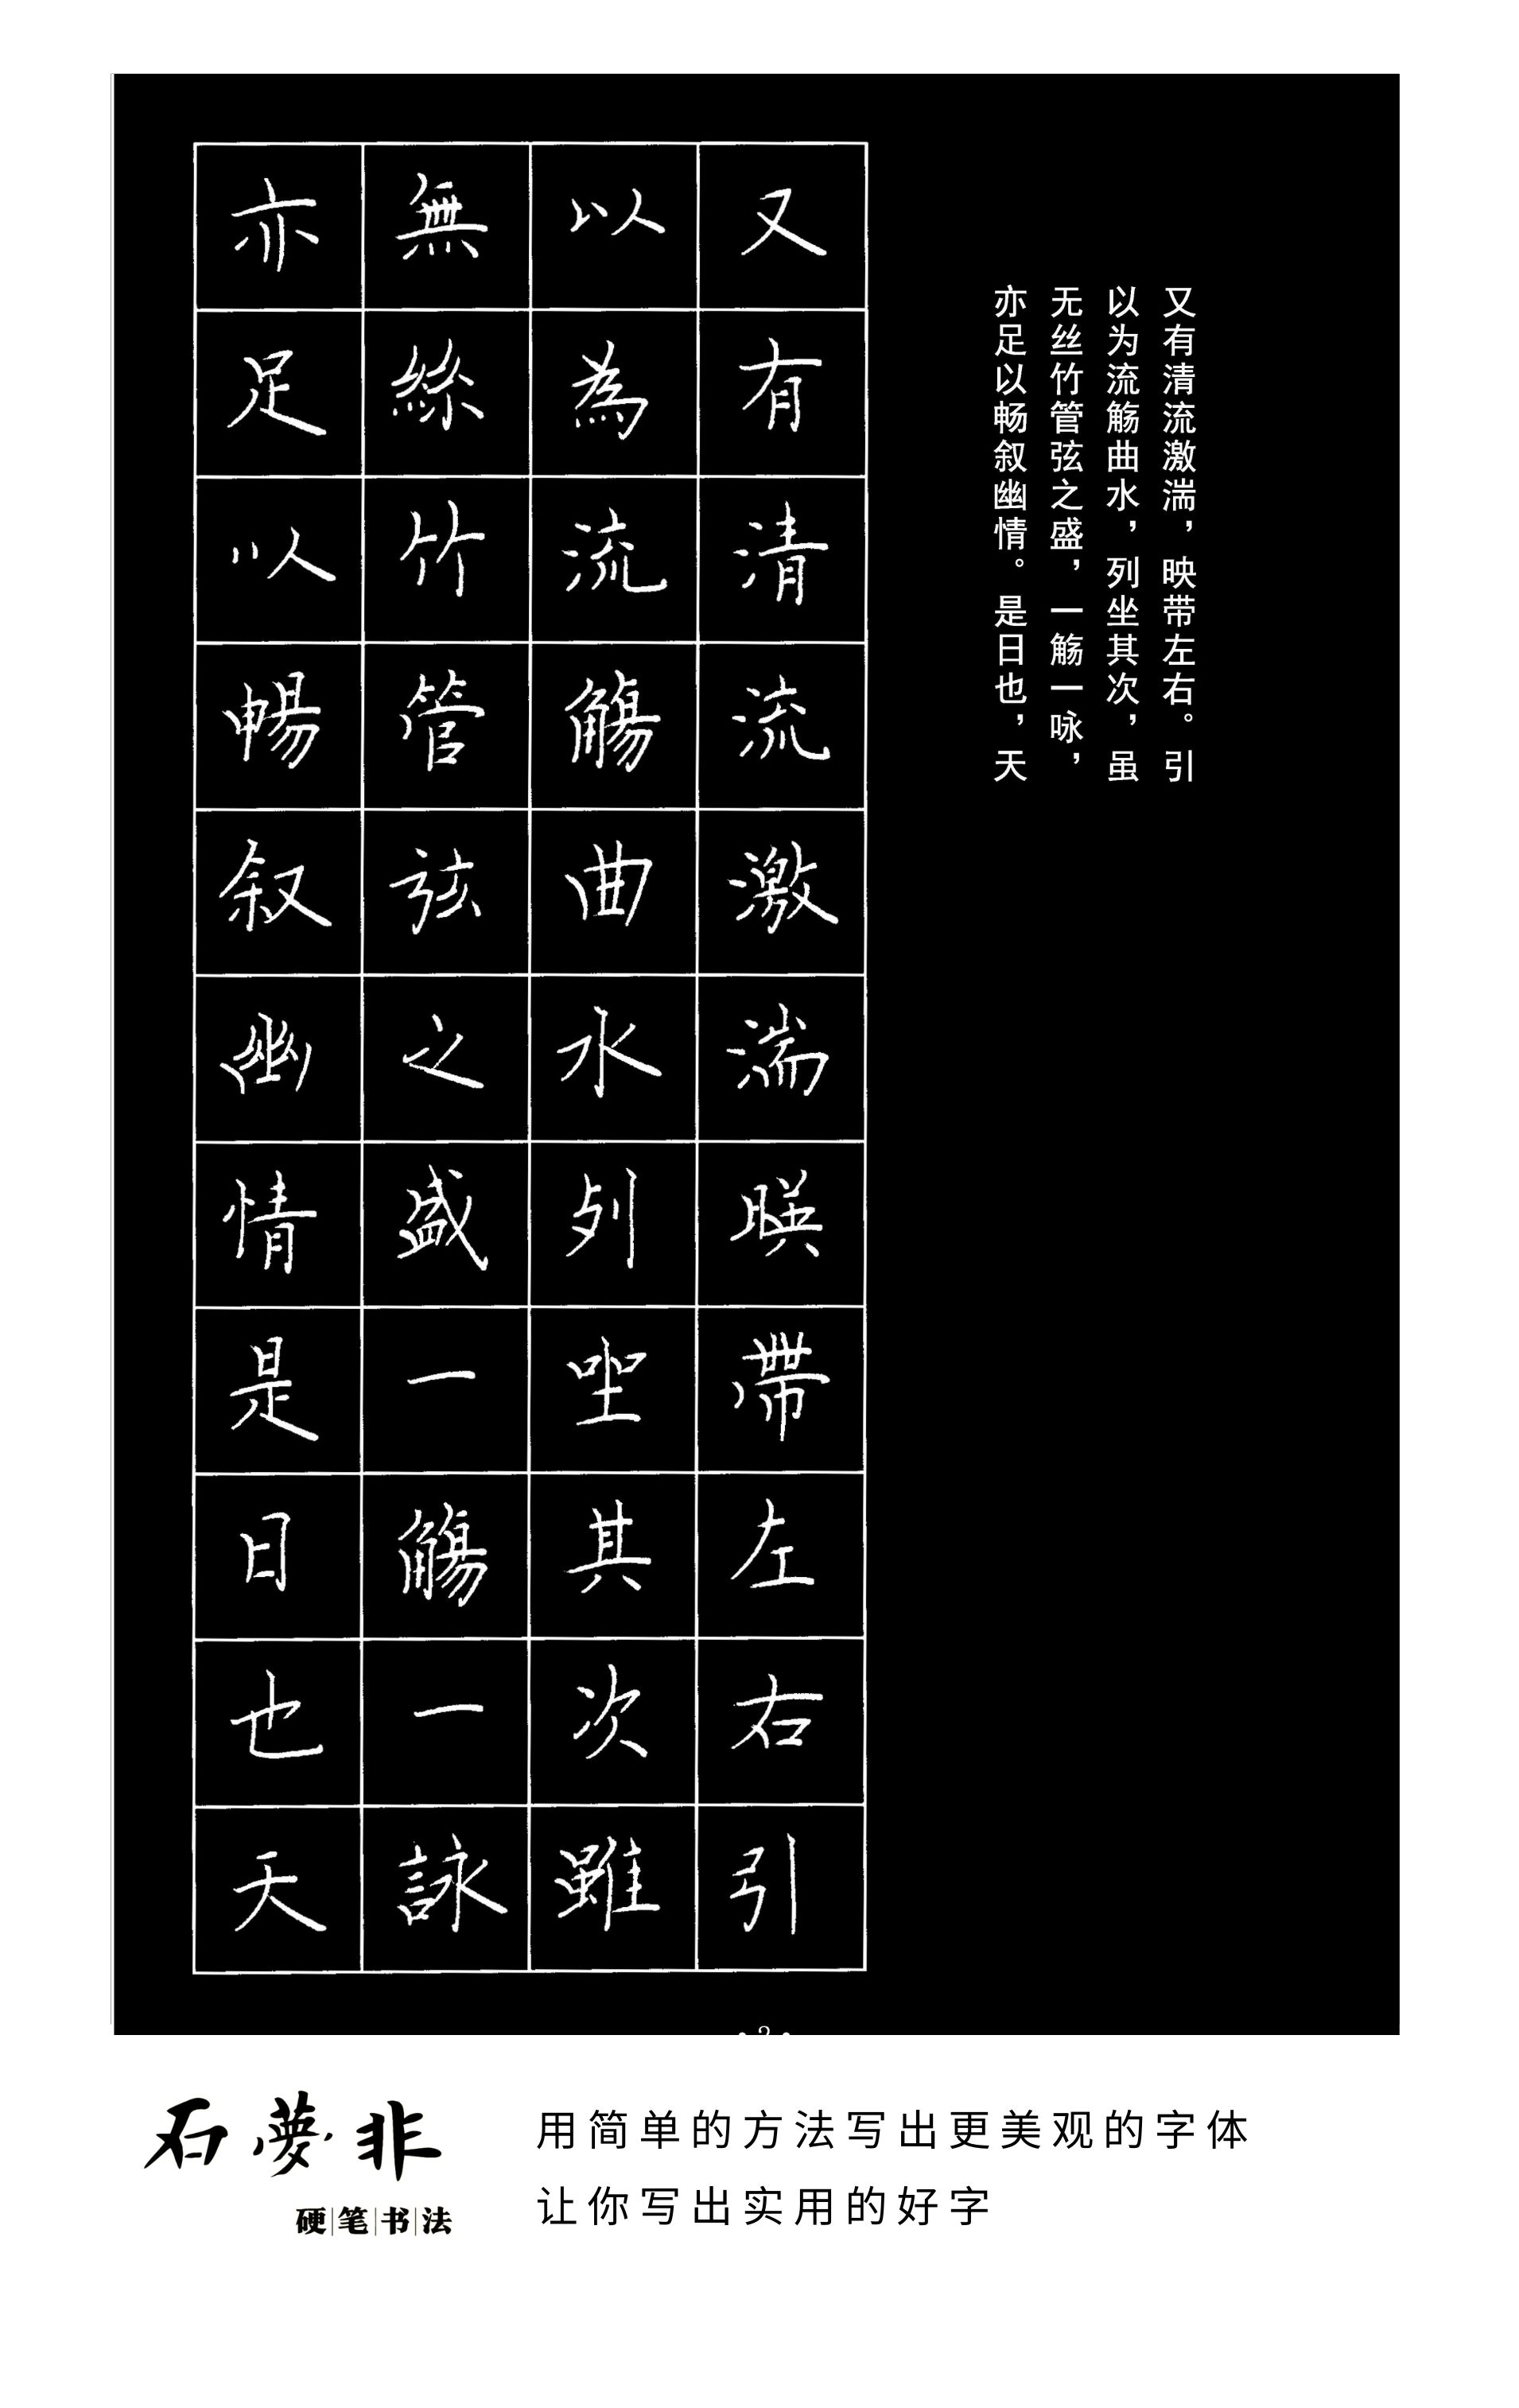 又有清流激湍，映带左右。引
以为流觞曲水，列坐其次，虽
无丝竹管弦之盛，一觞一咏，
亦足以畅叙幽情。是日也，天
又有清流激湍暎帶左右引
以為流觴曲水列坐其次雖
無絲竹管弦之盛一觴一詠
亦足以暢叙幽情是日也天
石夢非
硬|笔|书|法
用简单的方法写出更美观的字体
让你写出实用的好字